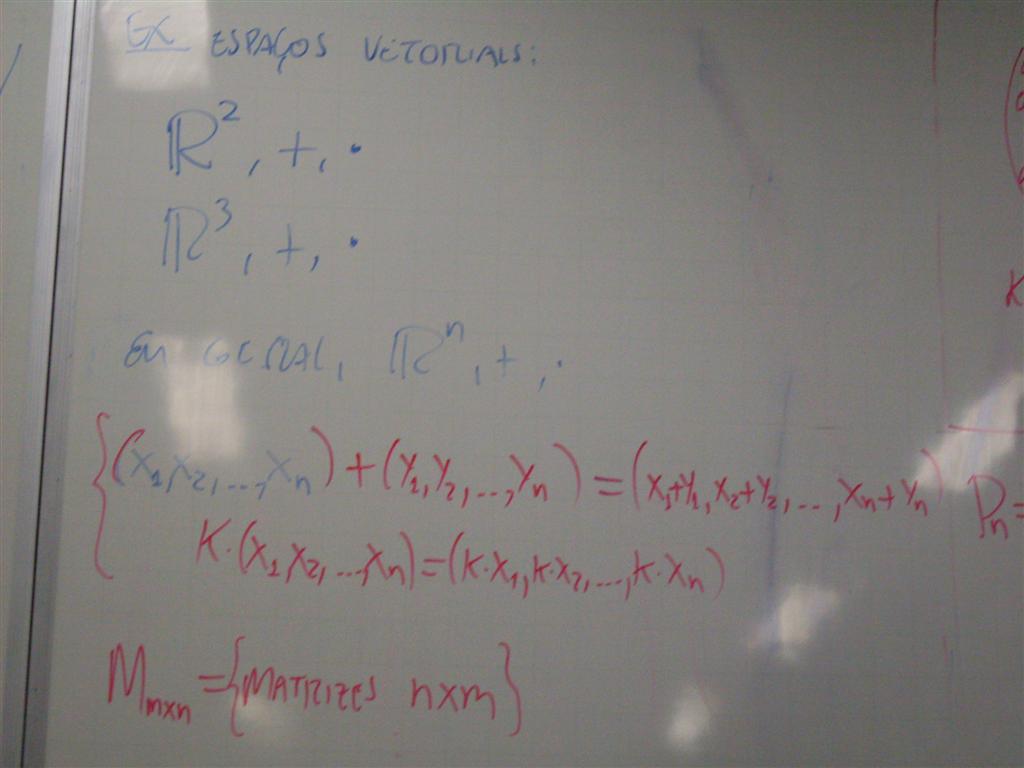 Ex ESPAÇOS VETORIAIS:
ℝ², +, ·
ℝ³, +, ·
EM GERAL, ℝⁿ, +, ·
{(x₁,x₂,...,xₙ)+(y₁,y₂,...,yₙ)=(x₁+y₁,x₂+y₂,...,xₙ+yₙ)
K·(x₁,x₂,...,xₙ)=(K·x₁,K·x₂,...,K·xₙ)
Pₙ=
Mₘₓₙ={MATRIZES nxm}